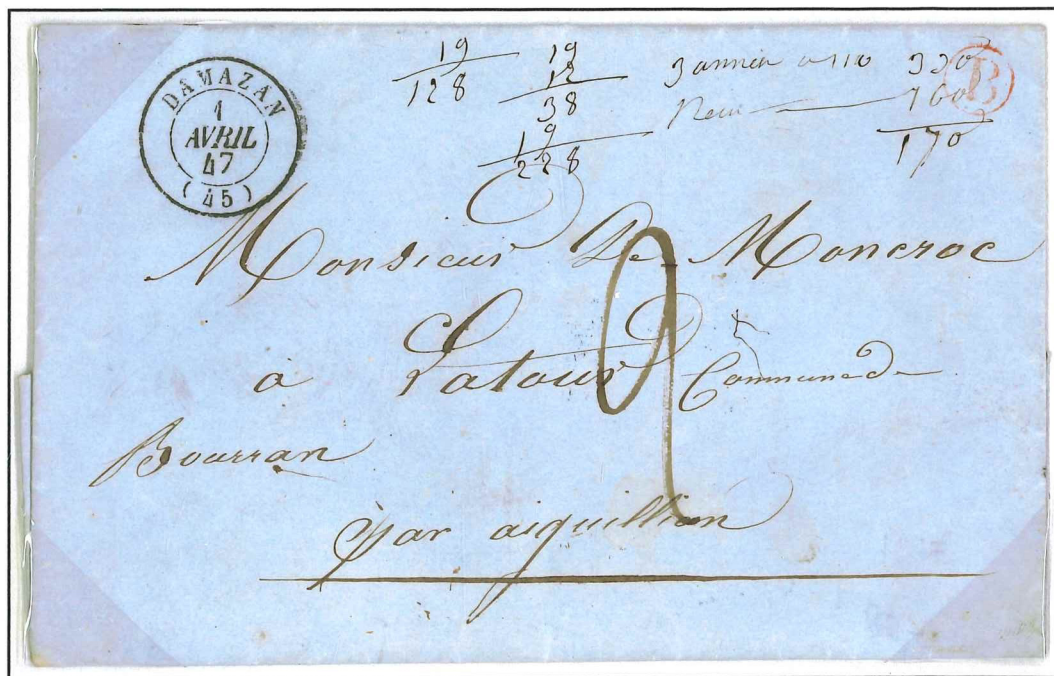 DAMAZAN
1
AVRIL
47
(45)
19
128
19
12
38
19
228
3 330
160
170
B
Monsieur De Moncroc
à Latour Commune de
Bourran
par aiguillion
2